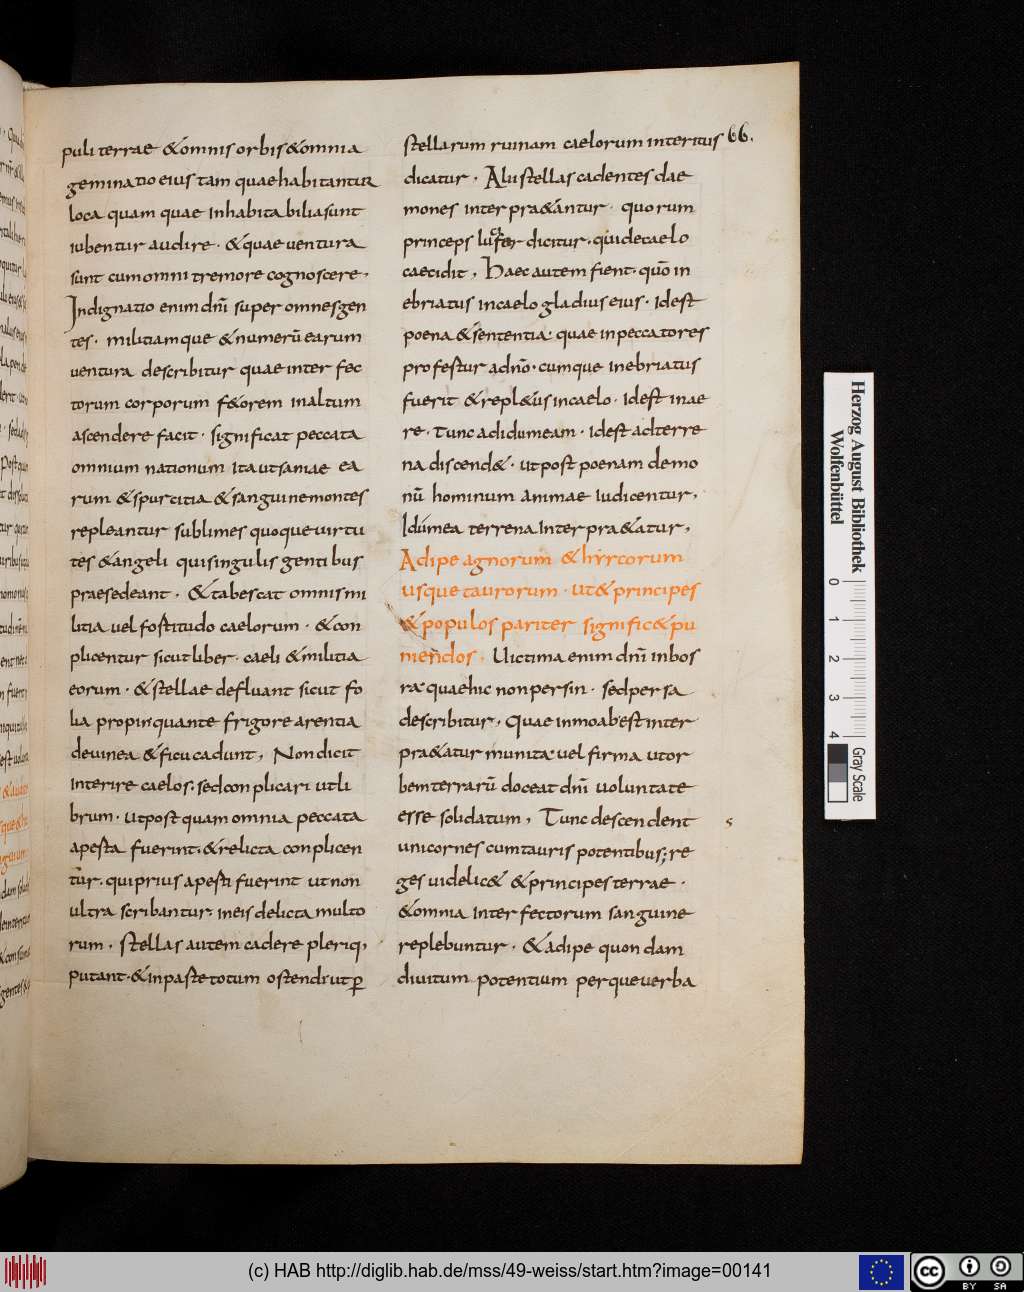 puli terrae & omnis orbis & omnia
geminatio eius tam quae habitantur
loca quam quae inhabitabilia sunt
iubentur audire · & quae uentura
sunt cum omni tremore cognoscere ,
Indignatio enim dnī super omnes gen
tes · militiamque & numerū earum
uentura describitur quae inter fec
torum corporum f&orem in altum
ascendere facit · significat peccata
omnium nationum ita ut saniae ea
rum & spurcitia & sanguine montes
repleantur sublimes quoque uirtu
tes & angeli qui singulis gentibus
praesedeant · & tabescat omnis mi
litia uel fostitudo caelorum · & con
plicentur sicut liber · caeli & militia
eorum · & stellae defluant sicut fo
lia propinquante frigore arentia
de uinea & ficu cadunt , Non dicit
interire caelos · sed conplicari ut li
brum · ut post quam omnia peccata
apesta fuerint · & relicta conplicen
tur · qui prius apesti fuerint ut non
ultra scribantur · in eis delicta multo
rum · Stellas autem cadere pleriq;
putant · & inpaste totum ostendi ut ꝑ
stellarum ruinam caelorum interitus
66.
dicatur · Alii stellas cadentes dae
mones interpra&antur · quorum
princeps lucifer dicitur · qui de caelo
caecidit , Haec autem fient · quo in
ebriatus in caelo gladius eius · Id est
poena & sententia · quae in peccatores
profestur ad no · cumque inebriatus
fuerit & repl&us in caelo · Id est in ae
re · tunc ad idumeam · id est ad terre
na discend& · ut post poenam demo
nū hominum animae iudicentur ,
Idumea terrena interpra&atur ,
Adipe agnorum & hyrcorum
usque taurorum · ut & principes
& populos pariter signific& pu
niendos · Uictima enim dnī in bos
ra · quae hic non per sin · sed per sa
describitur , Quae in moab est inter
pra&atur munita · uel firma ut or
bem terrarū doceat dnī uoluntate
esse solidatum , Tunc descendent
unicornes cum tauris potentibus; re
s
ges uidelic& & principes terrae ·
& omnia interfectorum sanguine
replebuntur · & adipe quondam
diuitum potentium perque uerba
Herzog August Bibliothek
Wolfenbüttel
0 1 2 3 4
Gray Scale
(c) HAB http://diglib.hab.de/mss/49-weiss/start.htm?image=00141
cc BY SA